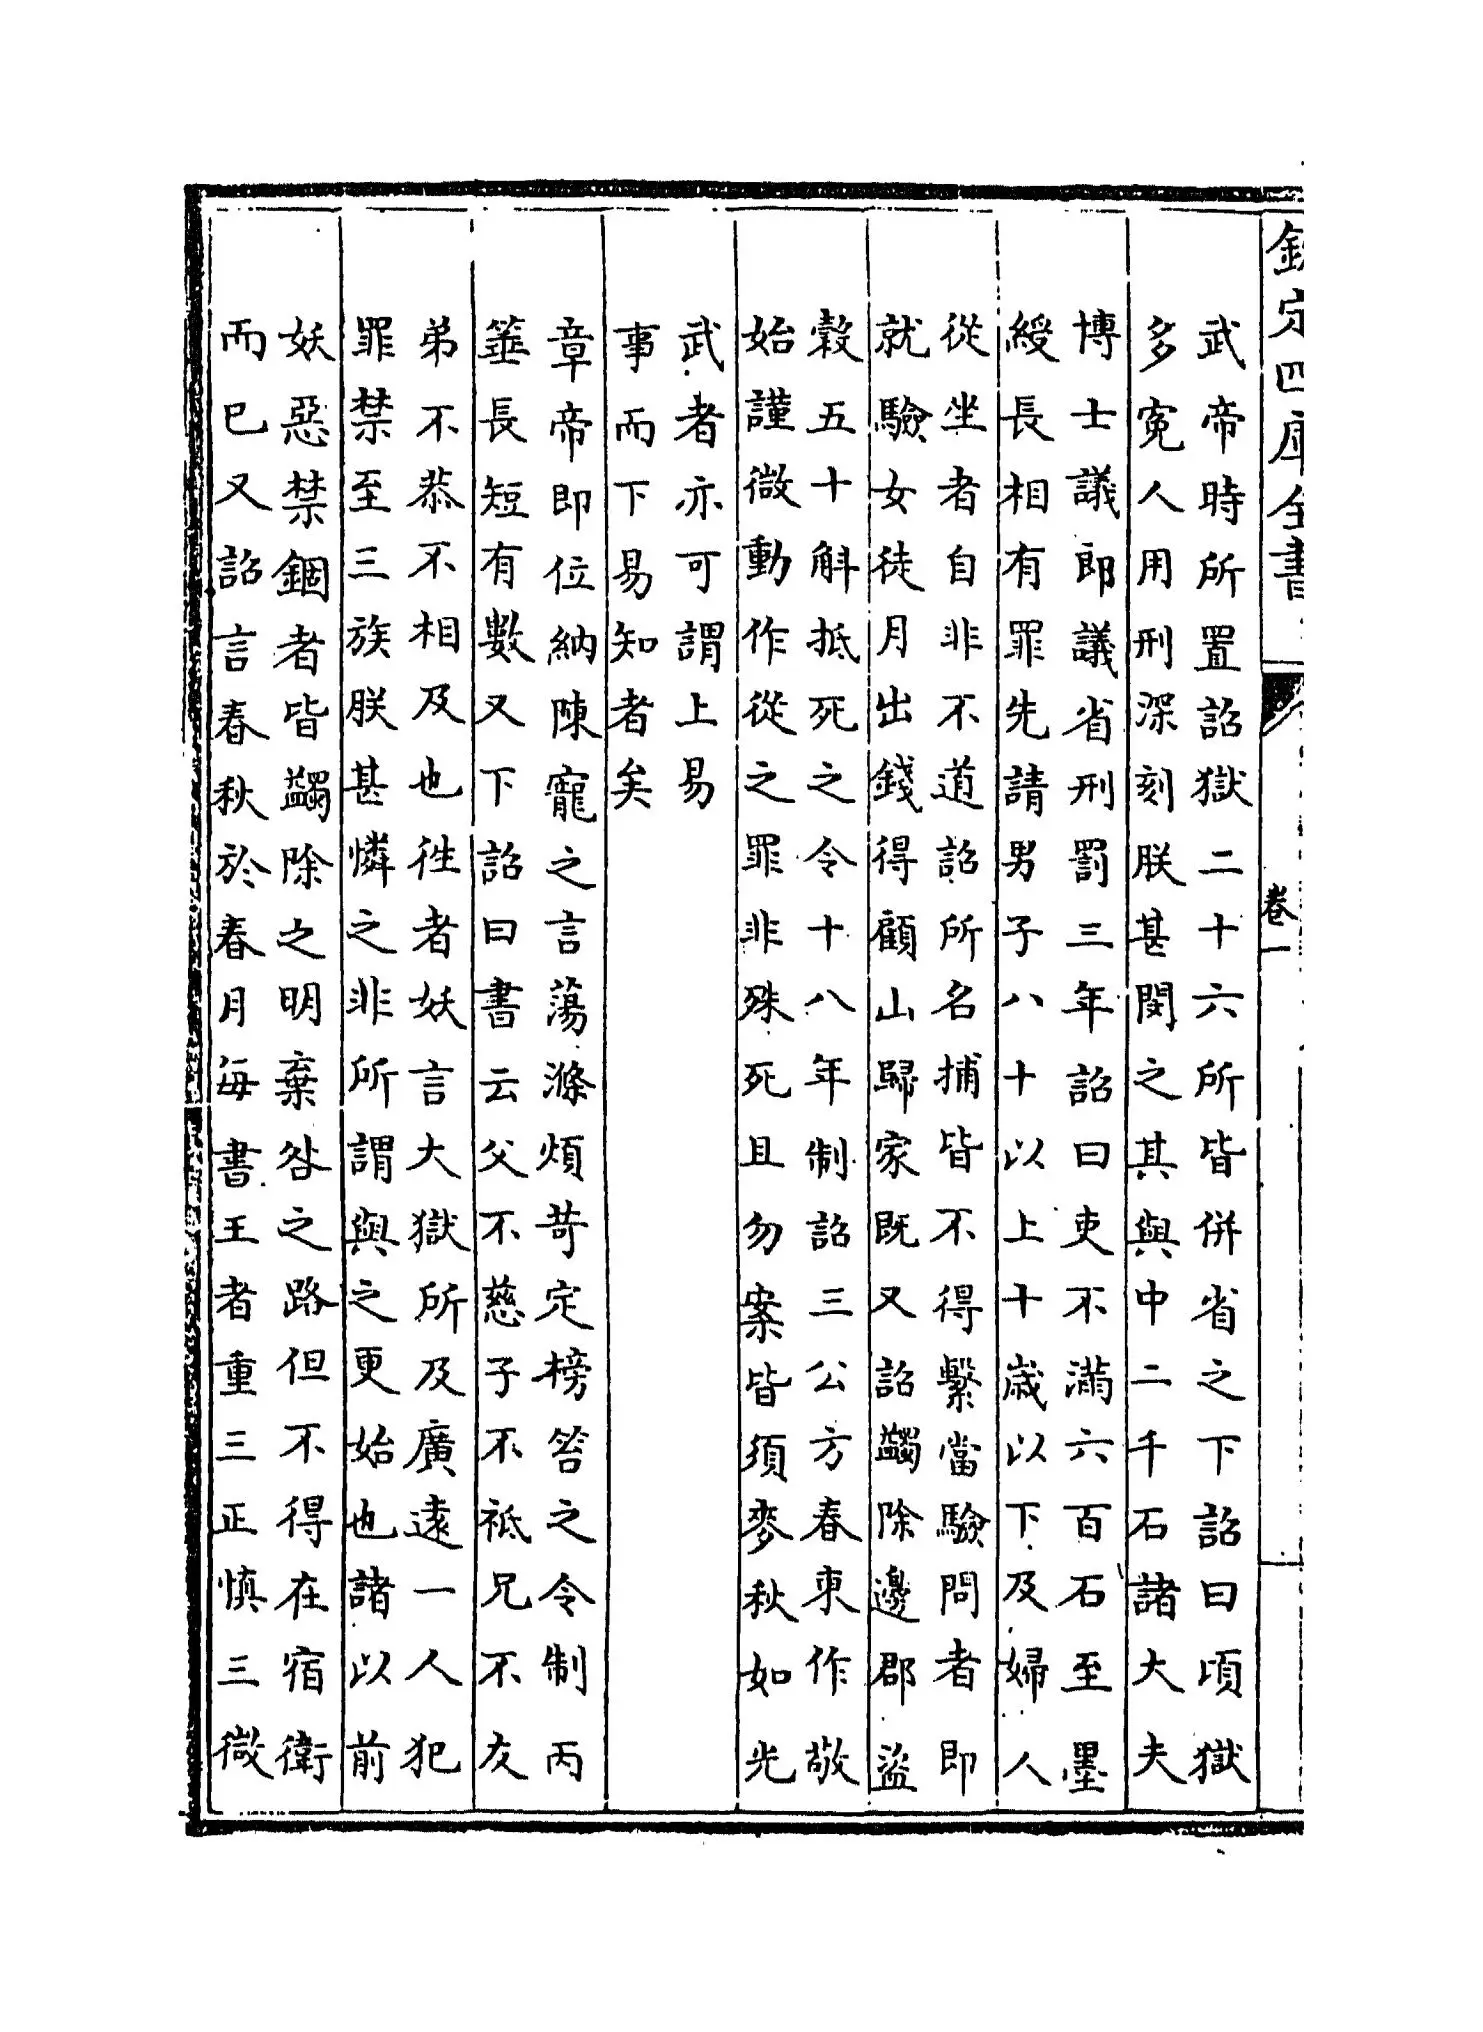 欽定四庫全書
卷一
武帝時所置詔獄二十六所皆併省之下詔曰頃獄
多寃人用刑深刻朕甚閔之其與中二千石諸大夫
博士議郎議省刑罰三年詔曰吏不滿六百石至墨
綬長相有罪先請男子八十以上十歲以下及婦人
從坐者自非不道詔所名捕皆不得繫當驗問者即
就驗女徒月出錢得顧山歸家既又詔蠲除邊郡盜
穀五十斛抵死之令十八年制詔三公方春東作敬
始謹微動作從之罪非殊死且勿案皆須麥秋如光
武者亦可謂上易
事而下易知者矣
章帝即位納陳寵之言蕩滌煩苛定榜笞之令制丙
箠長短有數又下詔曰書云父不慈子不祗兄不友
弟不恭不相及也徃者妖言大獄所及廣遠一人犯
罪禁至三族朕甚憐之非所謂與之更始也諸以前
妖惡禁錮者皆蠲除之明棄咎之路但不得在宿衛
而已又詔言春秋於春月每書王者重三正慎三微